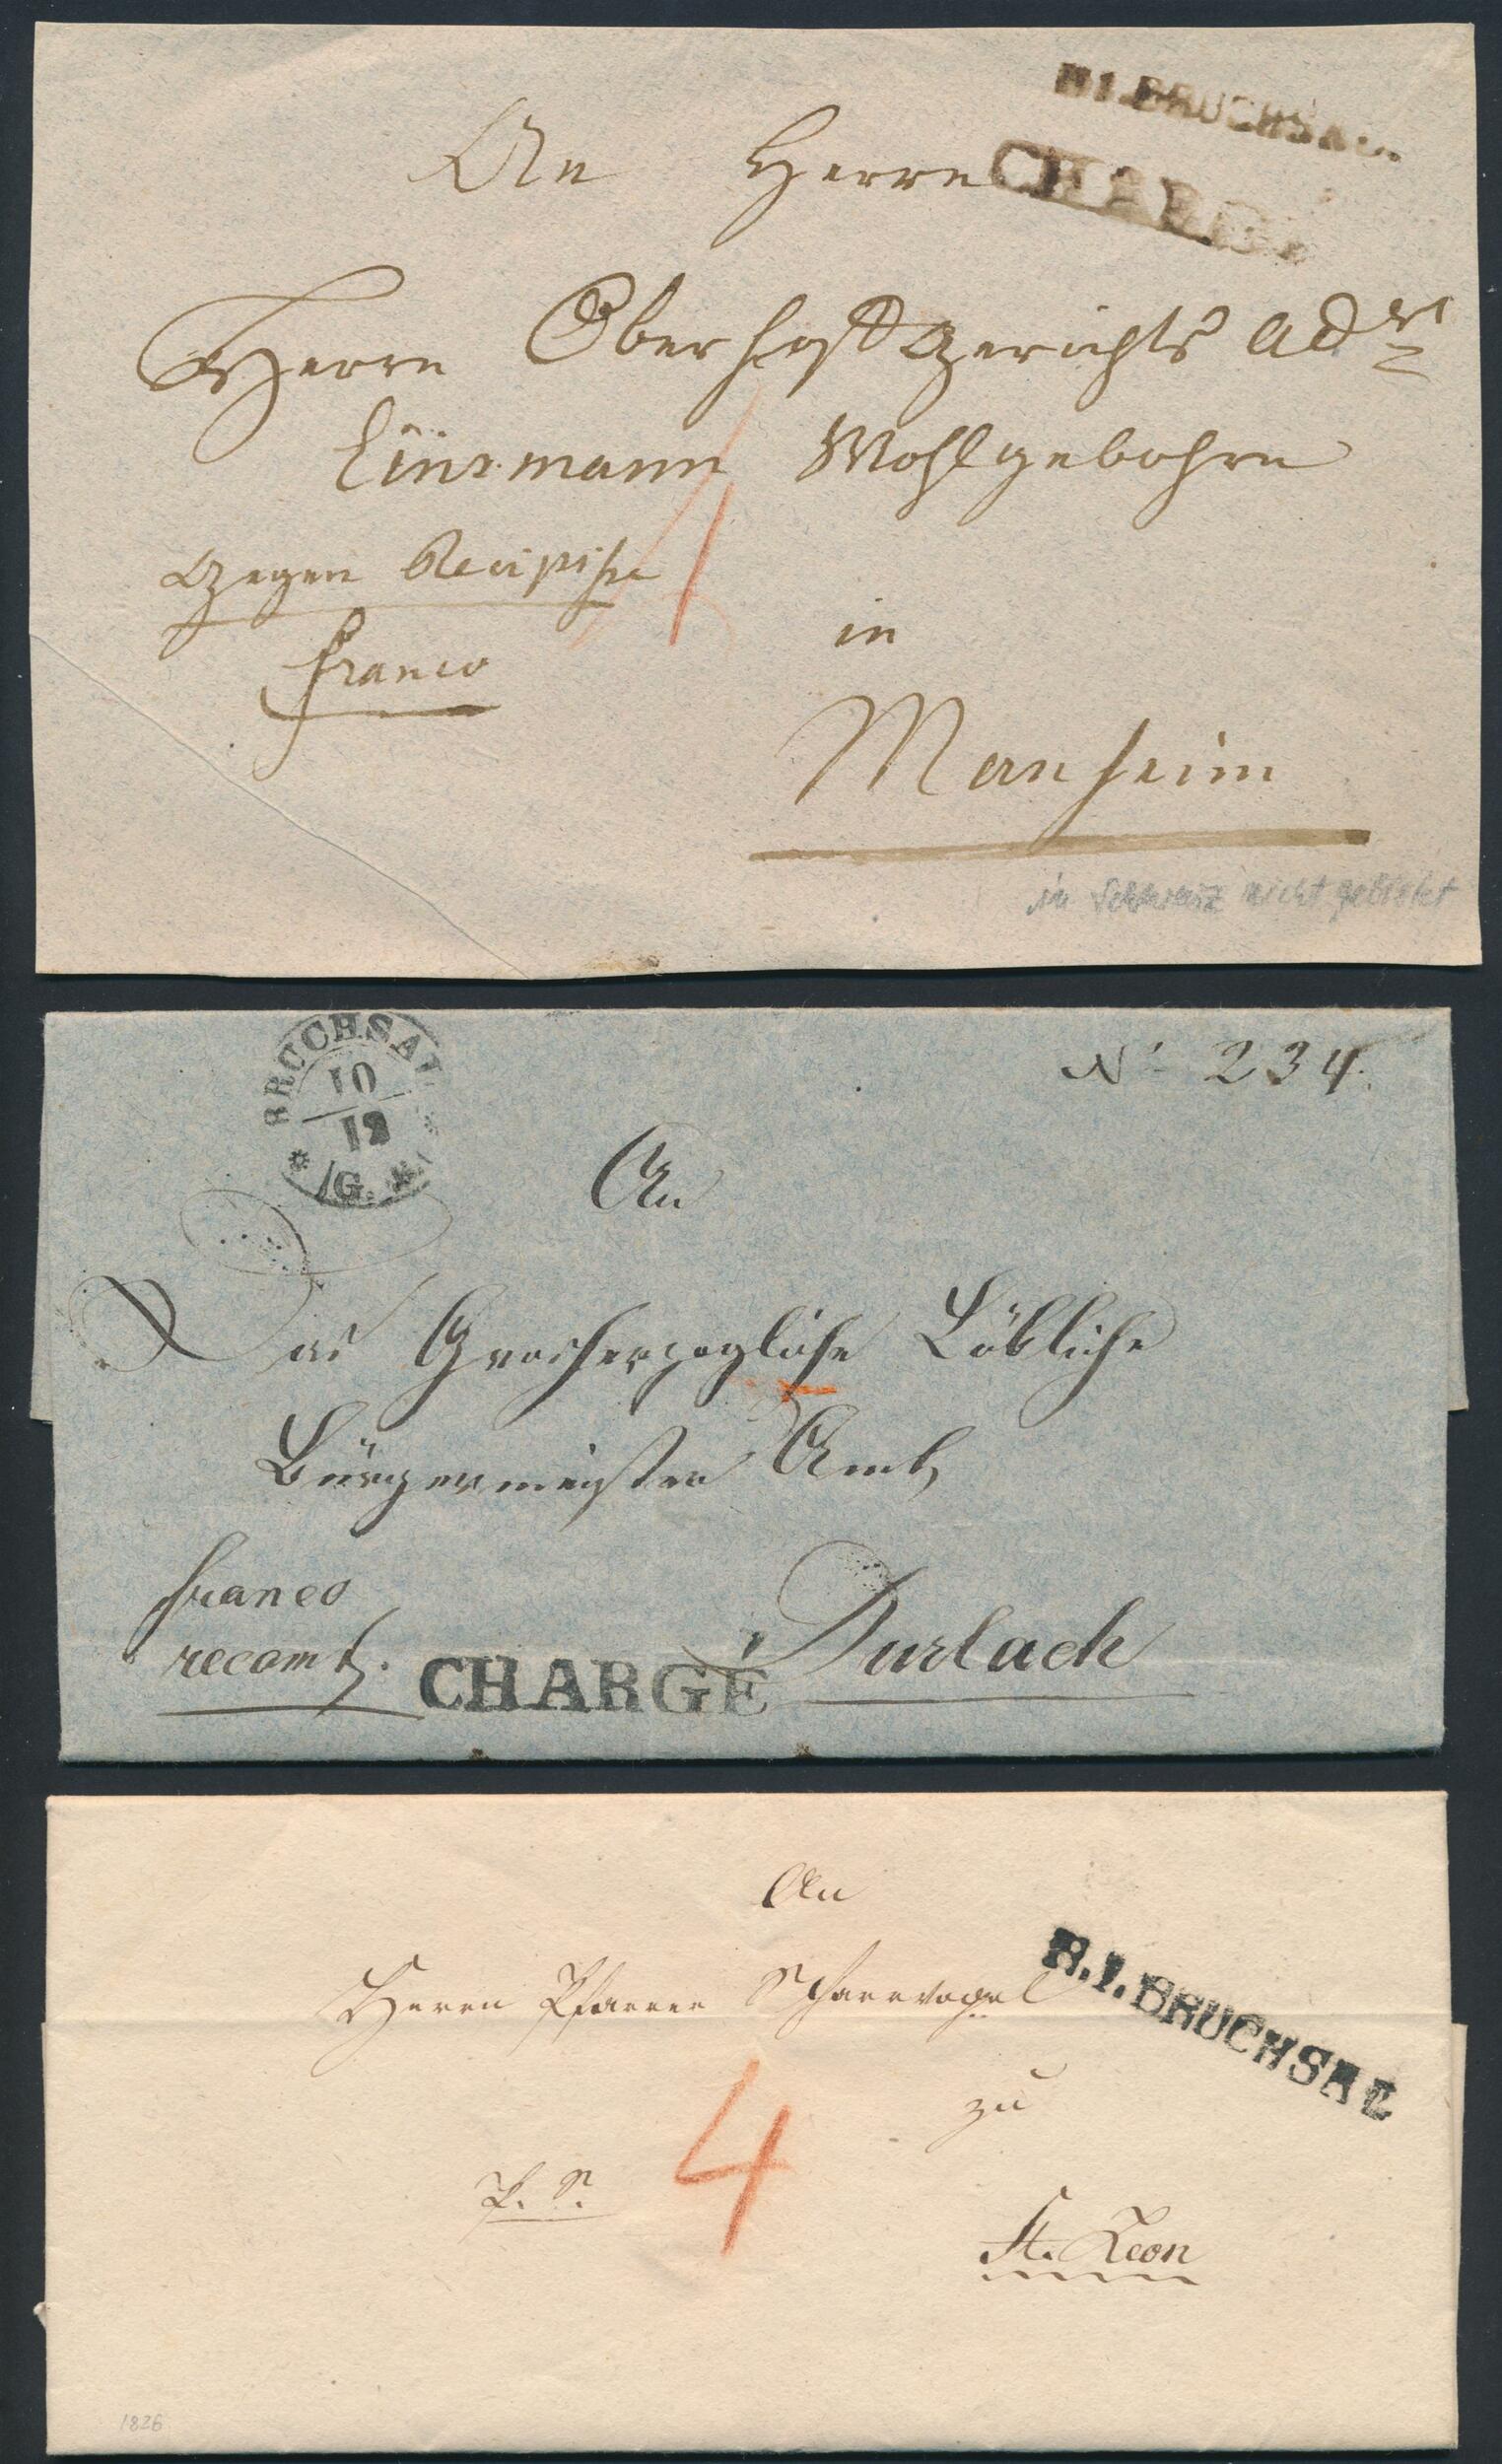 R.1.BRUCHSAL.
CHARGÉ
An Herrn
Herrn Oberhofgerichts Adv
Wohlgebohrn
gegen Recipisse
franco
in
Manheim
in Schwarz nicht gelistet
BRUCHSAL
10
12
G.
N: 234.
An
Das Grosherzogliche Löbliche
Bürgermeister Amt
franco
recomt. CHARGÉ Durlach
An
Herrn Pfarrer Scharvogel
R.1.BRUCHSAL
zu
4
P. S.
St. Leon
1826